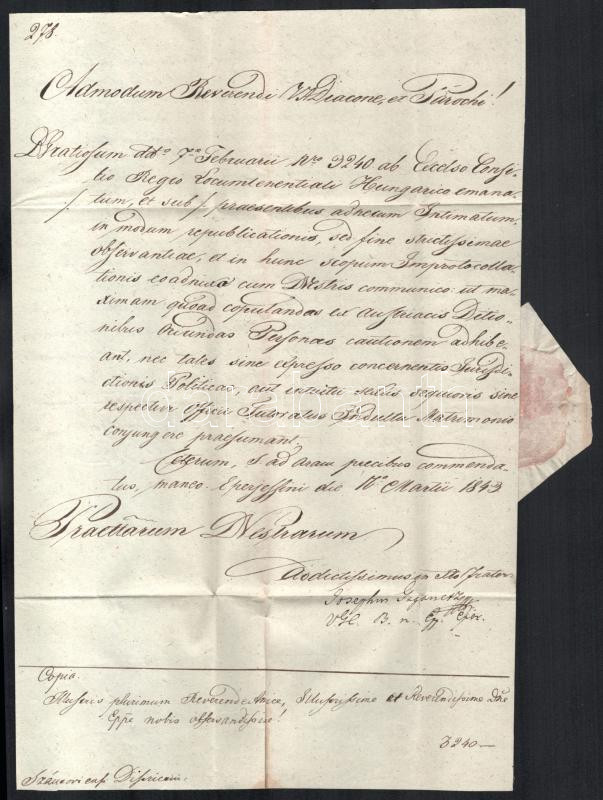 278.
Admodum Reverendi VADiacone, et Parochi!
Gratiosum ddto 7ma Februarii Nro 3240 ab Excelso Consi-
lio Regio Locumtenentiali Hungarico emana-
tum, et sub ./. praesentibus adnexum Intimatum,
in modum republicationis, sed fine strictissimae
observantiae, et in hunc scopum Improtocolla-
tionis eoadnixa cum DVestris communico: ut ma-
ximam quoad copulandas ex Austriacis Ditio-
nibus oriundas Personas cautionem adhibe-
ant, nec tales sine expresso concernentis Jurisdi-
ctionis Politicae, aut intuitu sexus sequioris sine
respective Officii Tutoratus Indultu Matrimonio
conjungere praesumant.
Ceterum, S. ad Aram precibus commenda-
tus, maneo. Eperjessini die 16a Martii 1843
DVestrarum
Addictissimus in Xto frater
Josephus
Copia.
plurimum Reverende Amice, Illustrissime et Reverendissime Dne
Eppe nobis observandissime!
3240—